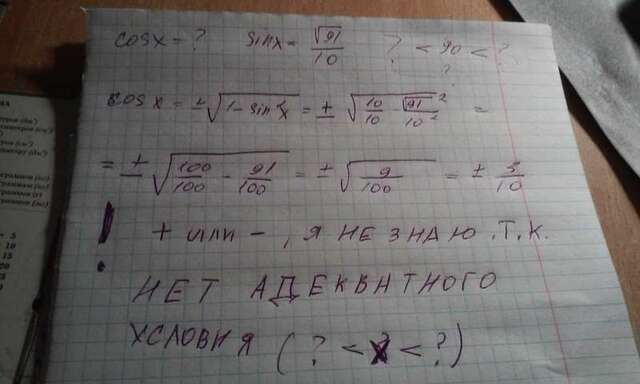 cosx = ? sinx = √91/10 ? < 90 < ?
?
cosx = ±√(1 - sin²x) = ± √(10/10 - √91²/10²) =
= ± √(100/100 - 91/100) = ± √(9/100) = ± 3/10
! + или - , я не знаю . т.к.
НЕТ АДЕКВАТНОГО
УСЛОВИЯ ( ? < x < ? )
5
10
15
20